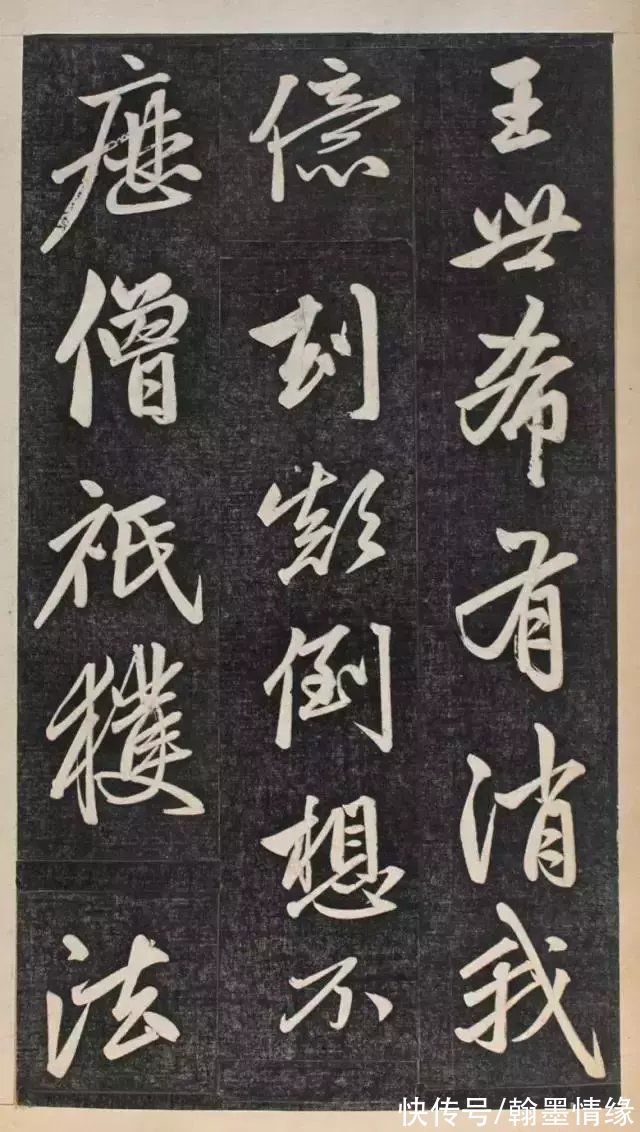 王世希有消我
億劫顛倒想不
歷僧祇穫法
快传号/翰墨情缘